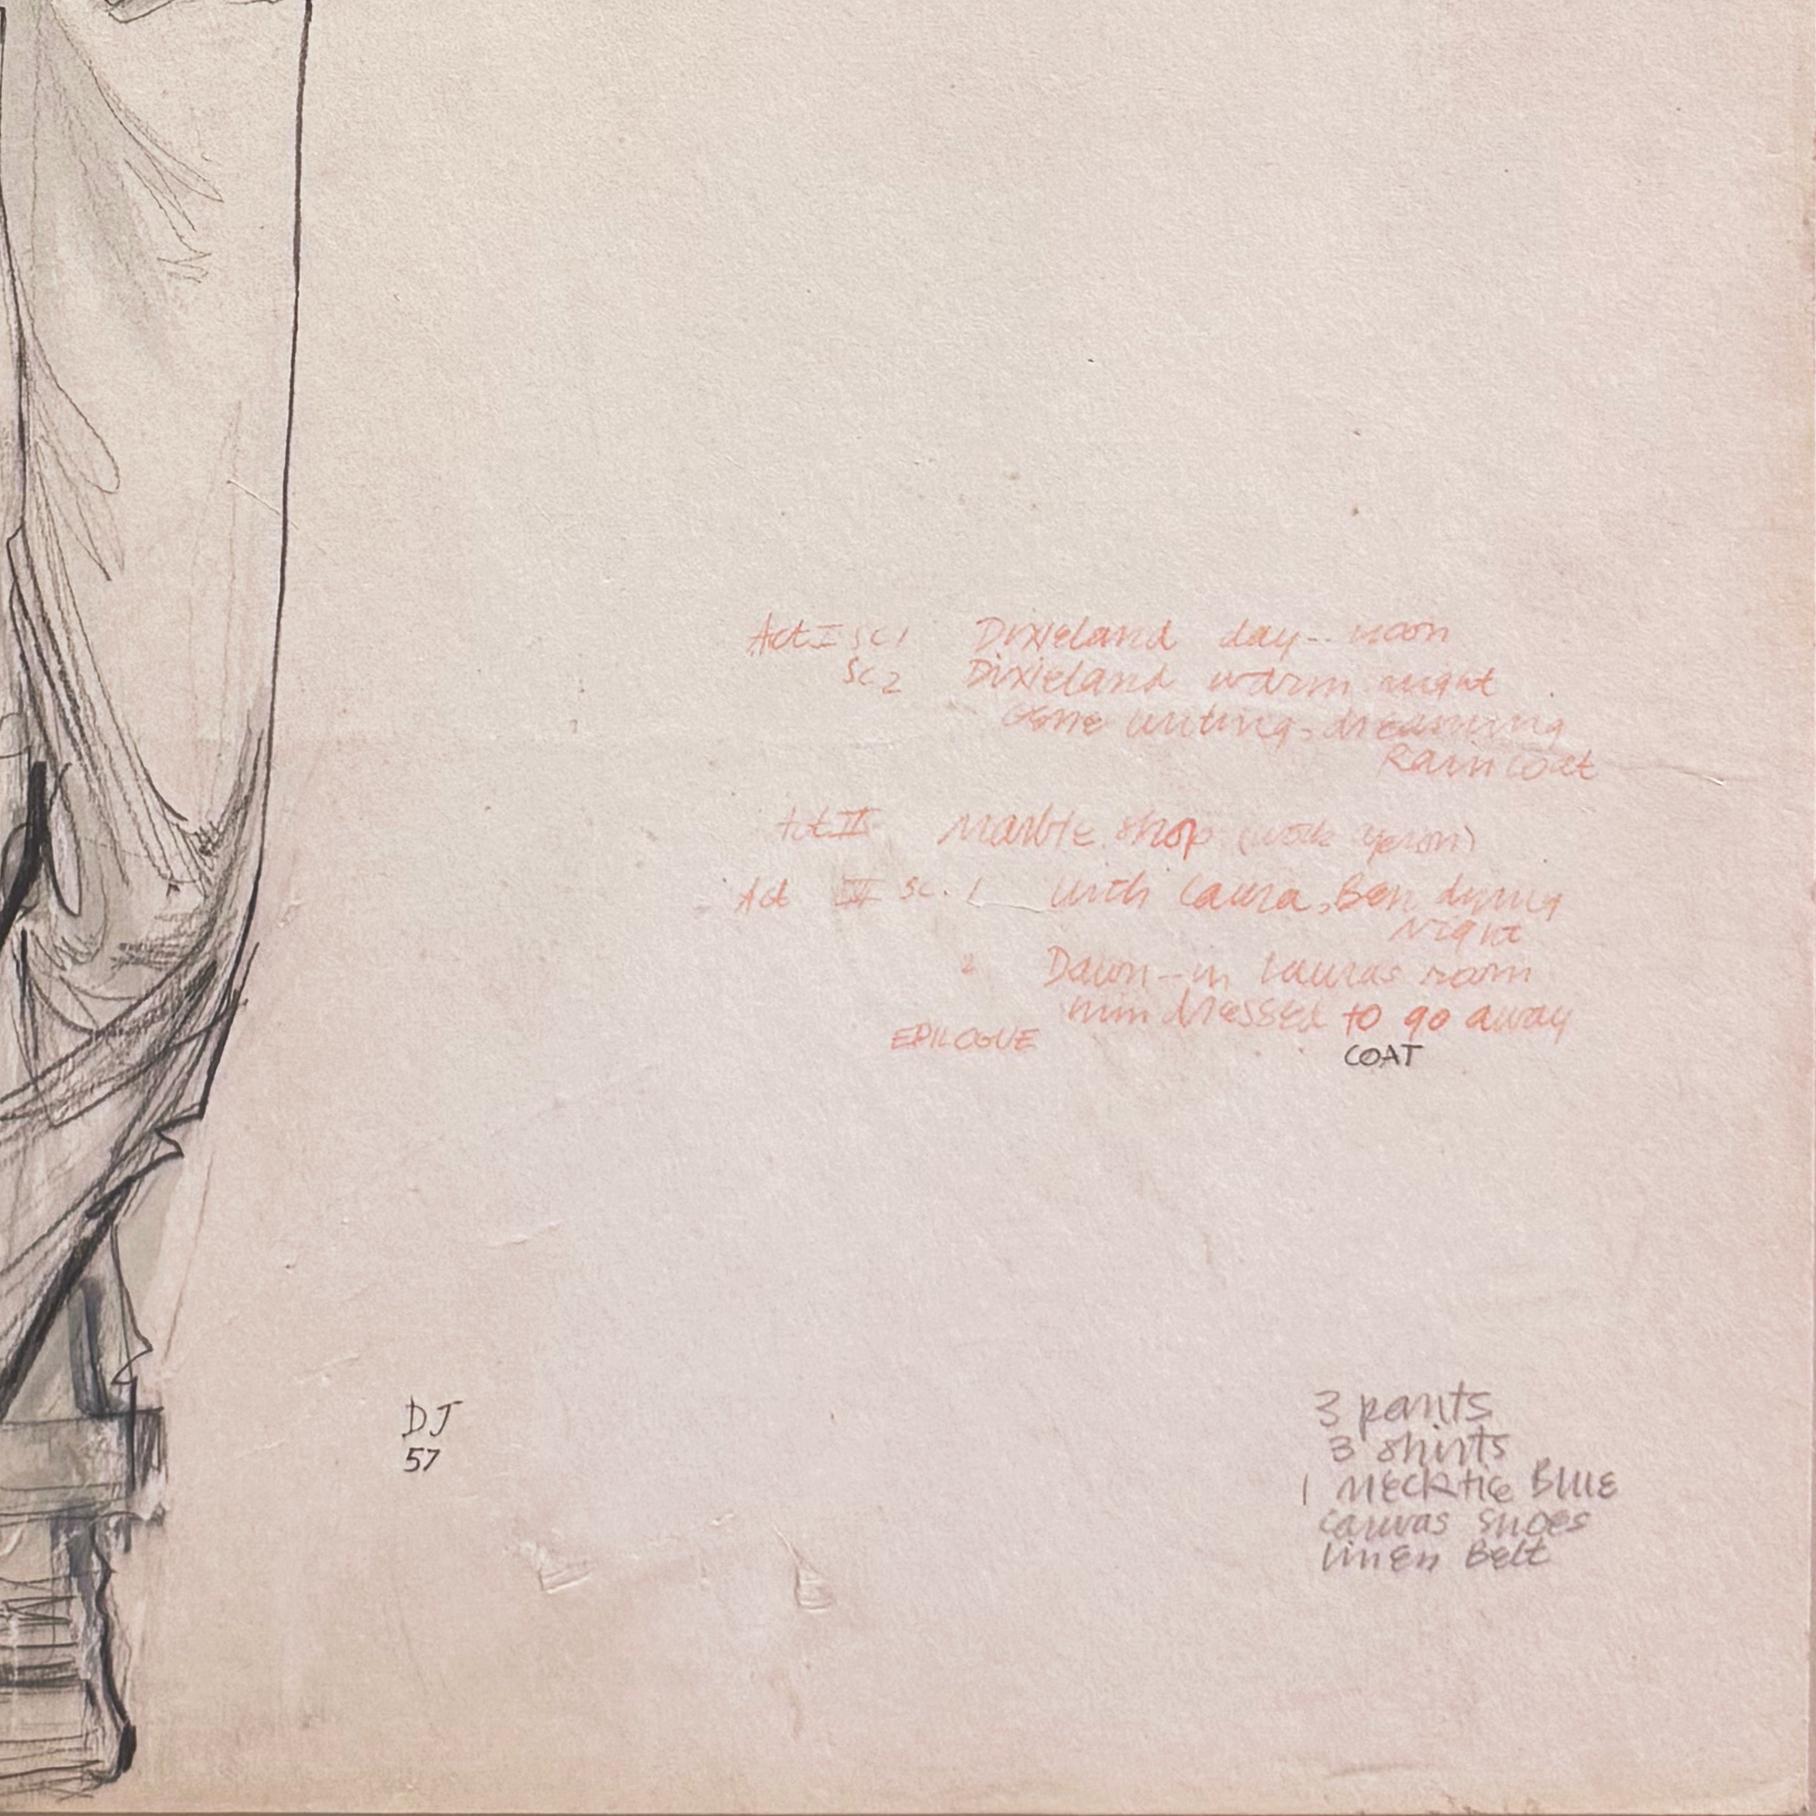 Act I Sc 1 Dixieland day -- noon
Sc 2 Dixieland warm night
Gene writing, dreaming
Raincoat
Act II Marble shop (work apron)
Act III Sc. 1 with Laura, Ben dying
Night
2 Dawn - in Lauras room
dressed to go away
EPILOGUE
COAT
DJ
57
3 pants
3 shirts
1 necktie Blue
canvas shoes
linen Belt